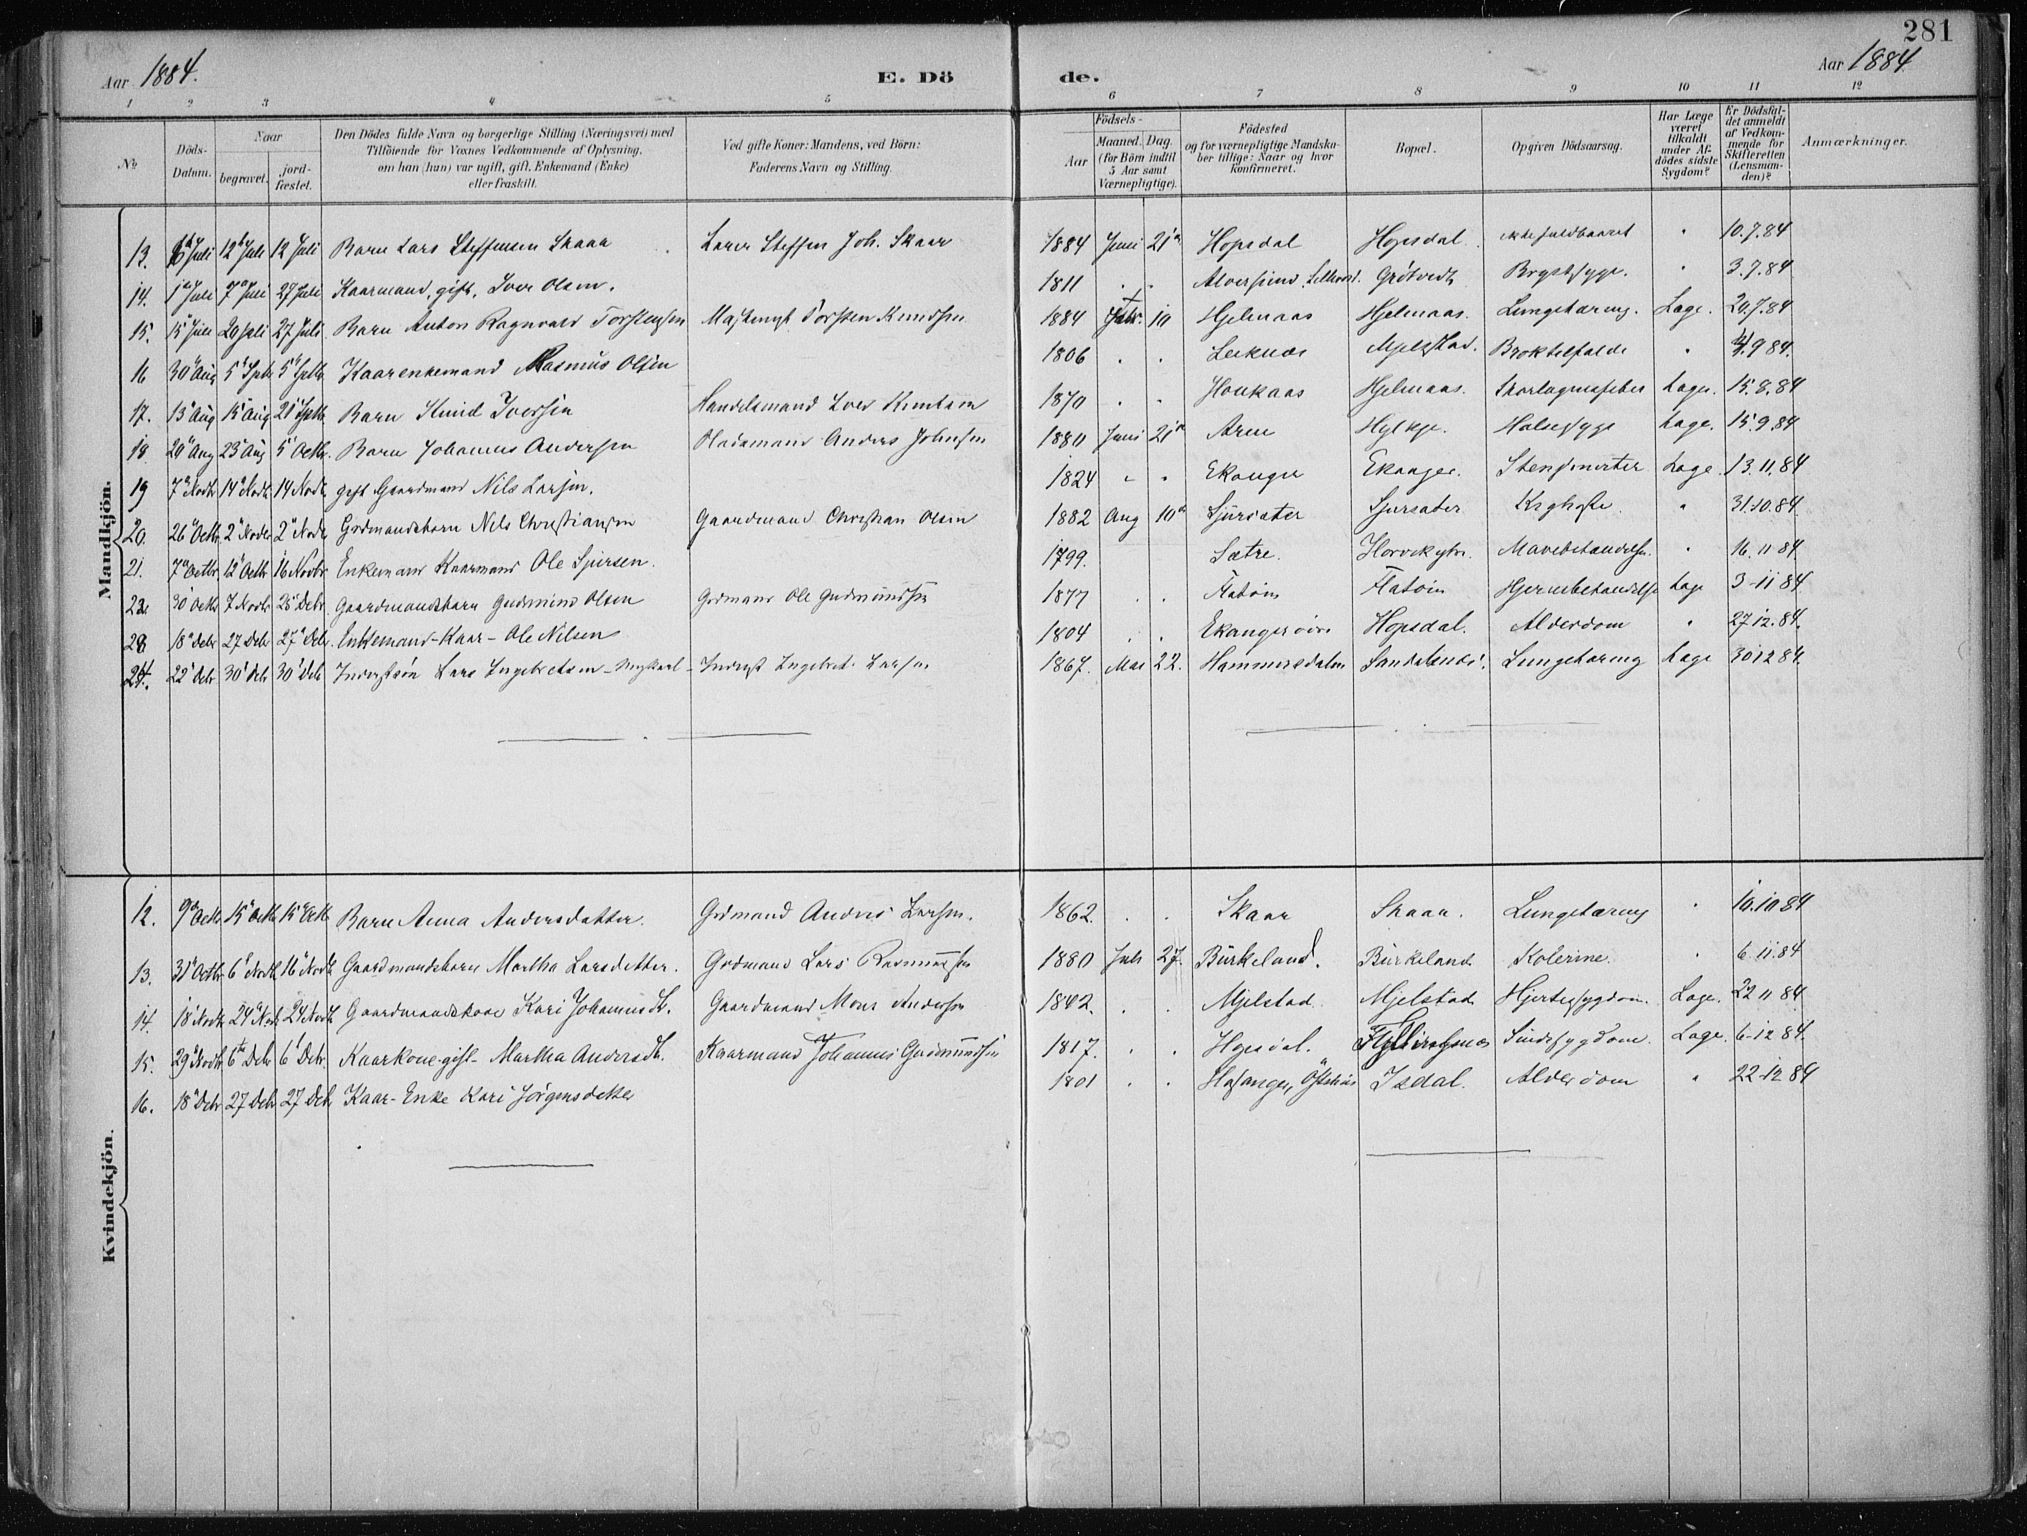 281
Aar 1884. E. Dö de. Aar 1884
1 2 3 4 5 6 7 8 9 10 11 12
No
Döds-Datum.
Naar
begravet. jord-fæstet.
Den Dödes fulde Navn og borgerlige Stilling (Næringsvei) med
Tilföiende for Voxnes Vedkommende af Oplysning,
om han (hun) var ugift, gift, Enkemand (Enke)
eller fraskilt.
Ved gifte Koner: Mandens, ved Börn:
Faderens Navn og Stilling.
Födsels-
Aar Maaned. Dag.
(for Börn indtil
5 Aar samt
Værnepligtige).
Födested
og for værnepligtige Mandska-
ber tillige: Naar og hvor
konfirmeret.
Bopæl.
Opgiven Dödsaarsag.
Har Læge
været
tilkaldt
under Af-
dödes sidste
Sygdom?
Er Dödsfal-
det anmeldt
af Vedkom-
mende for
Skifteretten
(Lensman-
den)?
Anmærkninger.
Mandkjön.
13. 6 Juli 12 Juli 12 Juli Barn Lars Steffensen Skaar Lærer Steffen Joh. Skaar 1884 Juni 21 Hopsdal Hopsdal. ikke fuldbaaret " 10.7.84
14. 1 Juli 7 Juli 27 Juli Kaarmand, gift, Iver Olsen. 1811 . . Grötvedt Brystsyge. " 3.7.84
15. 15 Juli 20 Juli 27 Juli Barn Anton Ragnvald Torstensen Torsten Knudsen 1884 10 Hjelmaas Hjelmaas. Lungetæring. Læge. 20.7.84
16 30 Aug 5 Sptb 5 Septb Kaarenkemand Rasmus Olsen 1806 . . Leiknæs Mjelstad. Broktilfælde " 4.9 84.
17. 13 Aug 15 Aug 21 Sptb Barn Iversen Handelsmand Iver Knutsen 1870 . . Houkaas Hjelmaas. Skarlagensfeber Læge. 15.8.84
18. 20 Aug 23 Aug 5 Octbr. Barn Johannes Andersen Pladsmand Anders Johnsen 1880 Juni 21 Arne Hylkje. Halssyge Læge. 15.9.84
19 7 Novbr 14 Novb. 14 Novb. gift Gaardmand Nils Larsen. 1824 " " Ekanger Ekanger. Stensmerter Læge. 13.11.84
20. 26 Octb. 2 Novbr 2 Novb Grdmandsbarn Nils Christiansen Gaardmand Christian Olsen 1882 Aug 10 Sjursæter Sjursæter Kighoste. " 31.10.84.
21. 7 Octbr. 12 Octbr 16 Novbr Enkemand Kaarmand Ole Sjursen. 1799. Sætre. " 16.11 84.
22. 30 Octbr 7 Novbr 25 Debr Gaardmandsbarn Gudmund Olsen Grdmand Ole Gudmundsen 1877 . . Flatöen Flatöen Hjernebetændelse Læge 3-11 84
23. 18 Debr 27 Debr 27 Debr. Enkemand-Kaar- Ole Nilsen 1804 . . Hopsdal. Alderdom " 27 12.84.
24. 22 Debr 30 Debr 30 Deb Inderstsön Lars Engebretsen - Inderst Engebret Larsen 1867. Mai 22. Hammersdalen Lungetæring Læge 30 12 84.
Kvindekjön.
12. 9 Octb. 15 Octb 15 Octb. Barn Anna Andersdatter. Grdmand Anders Larsen. 1862. . . Skaar Skaar. Lungetæring " 10.10 84
13. 31 Octbr 6 Novb 16 Novb Gaardmandsbarn Martha Larsdatter. Grdmand Lars Rasmussen 1880 Juli 27. Birkeland. Birkeland Kolerine. " 6.11.84
14. 18 Novbr 24 Novb 24 Novb Gaardmandskone Kari Johannesd. Gaardmand Mons Andersen 1842. . . Mjelstad. Mjelstad Hjertesygdom. Læge. 22 11 84.
15. 29 Novbr 6 Debr 6 Debr. Kaarkone-gift- Martha Andersdt. Kaarmand Johannes Gudmundsen 1817. . . Hopsdal. Sindssygdom. Læge. 6-12 84.
16. 18 Debr 27 Debr 27 Debr Kaar-Enke Kari Jörgensdatter 1801 . . Isdal. Alderdom " 22-12 84